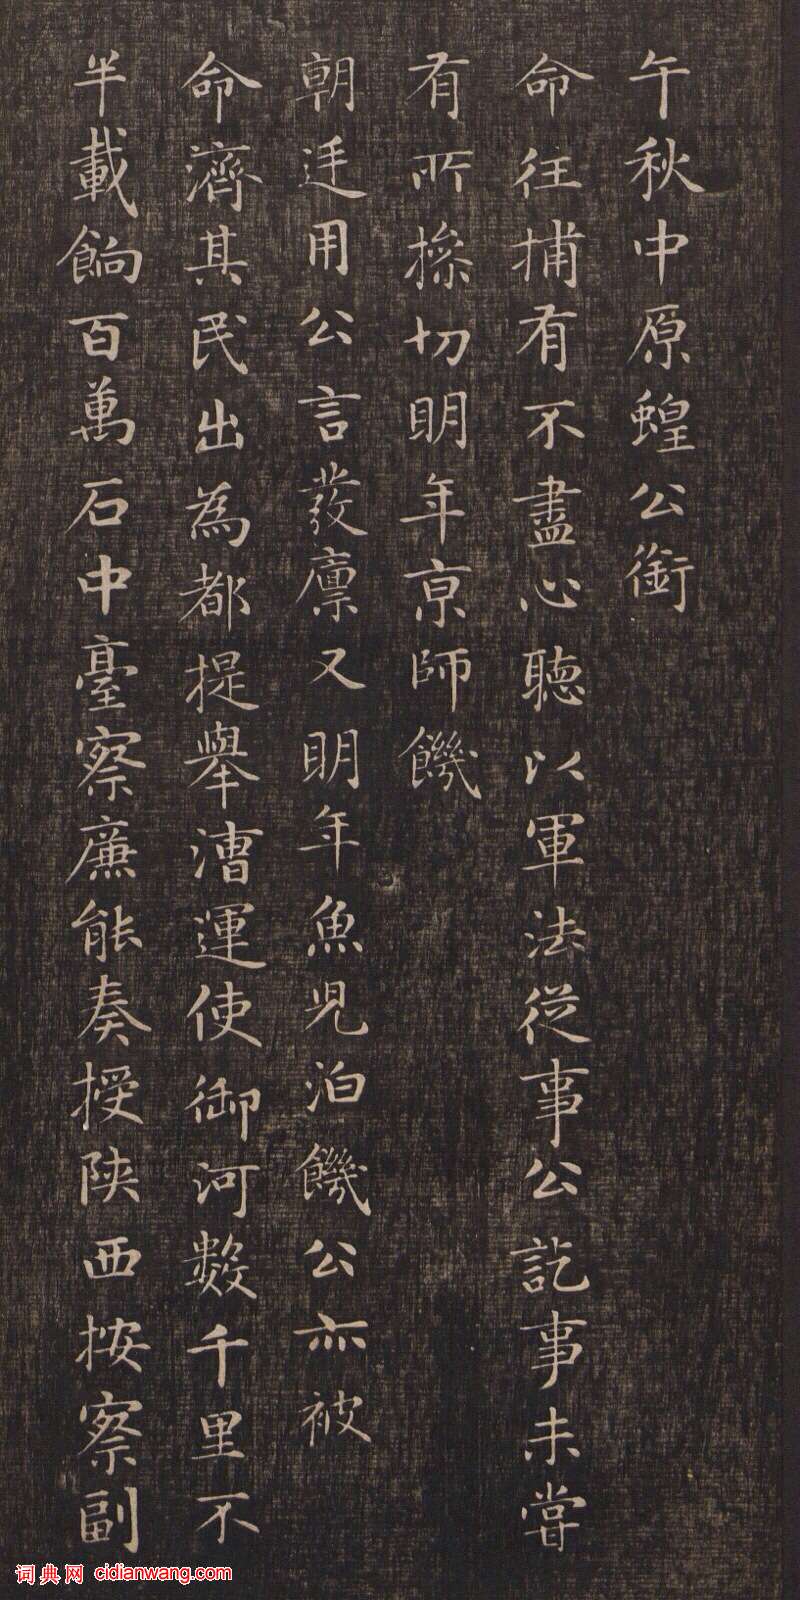 午秋中原蝗公銜
命往捕有不盡心聽以軍法從事公訖事未嘗
有所操切明年京師饑
朝廷用公言發廩又明年魚児泊饑公亦被
命濟其民出為都提舉漕運使御河數千里不
半載餉百萬石中臺察廉能奏授陝西按察副
词典网 cidianwang.com